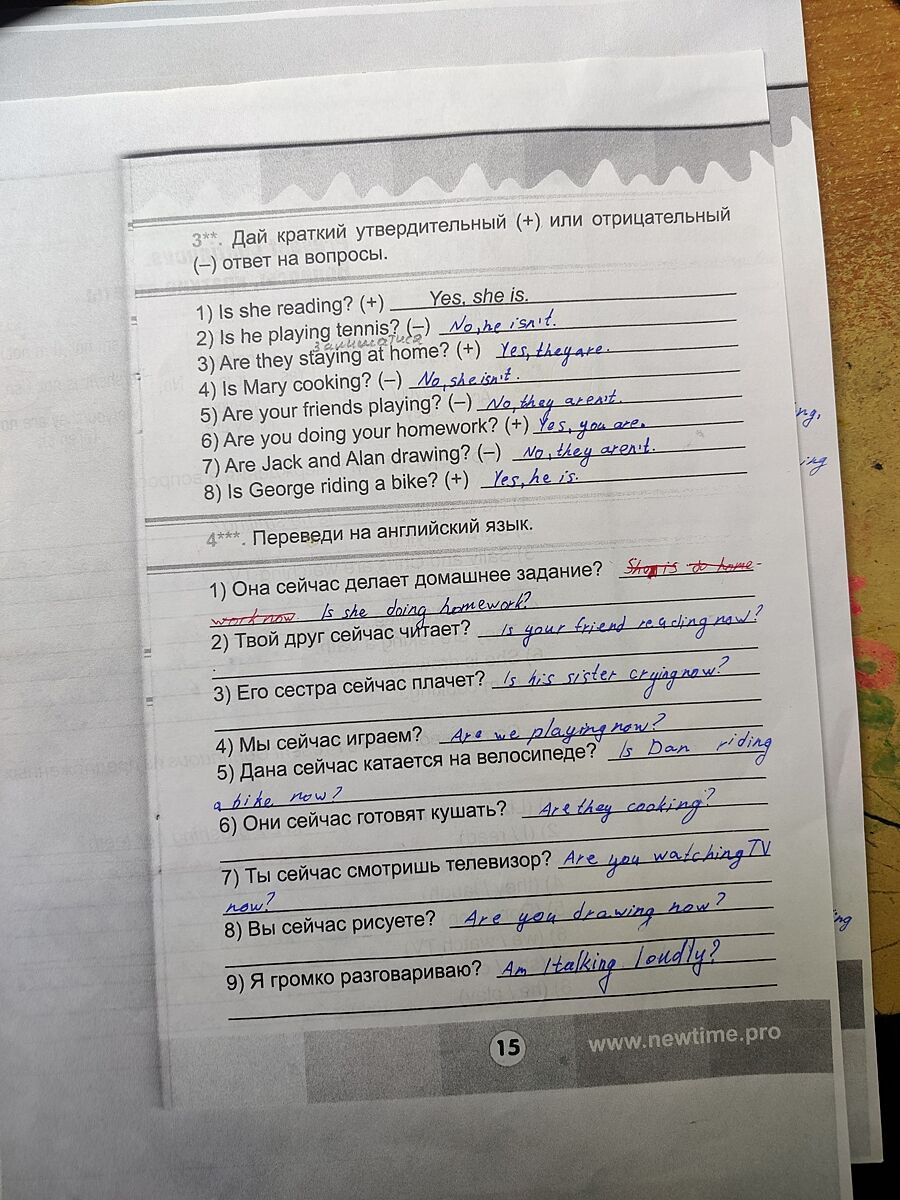 3**. Дай краткий утвердительный (+) или отрицательный
(–) ответ на вопросы.
1) Is she reading? (+) Yes, she is.
2) Is he playing tennis? (–) No, he isn't.
заниматися
3) Are they staying at home? (+) Yes, they are.
4) Is Mary cooking? (–) No, she isn't.
5) Are your friends playing? (–) No, they aren't.
6) Are you doing your homework? (+) Yes, you are.
7) Are Jack and Alan drawing? (–) No, they aren't.
8) Is George riding a bike? (+) Yes, he is.
4***. Переведи на английский язык.
1) Она сейчас делает домашнее задание? She is do home-
work now. Is she doing homework?
2) Твой друг сейчас читает? Is your friend reading now?
3) Его сестра сейчас плачет? Is his sister crying now?
4) Мы сейчас играем? Are we playing now?
5) Дана сейчас катается на велосипеде? Is Dan riding
a bike now?
6) Они сейчас готовят кушать? Are they cooking?
7) Ты сейчас смотришь телевизор? Are you watching TV
now?
8) Вы сейчас рисуете? Are you drawing now?
9) Я громко разговариваю? Am I talking loudly?
15
www.newtime.pro
ng,
ing
ng